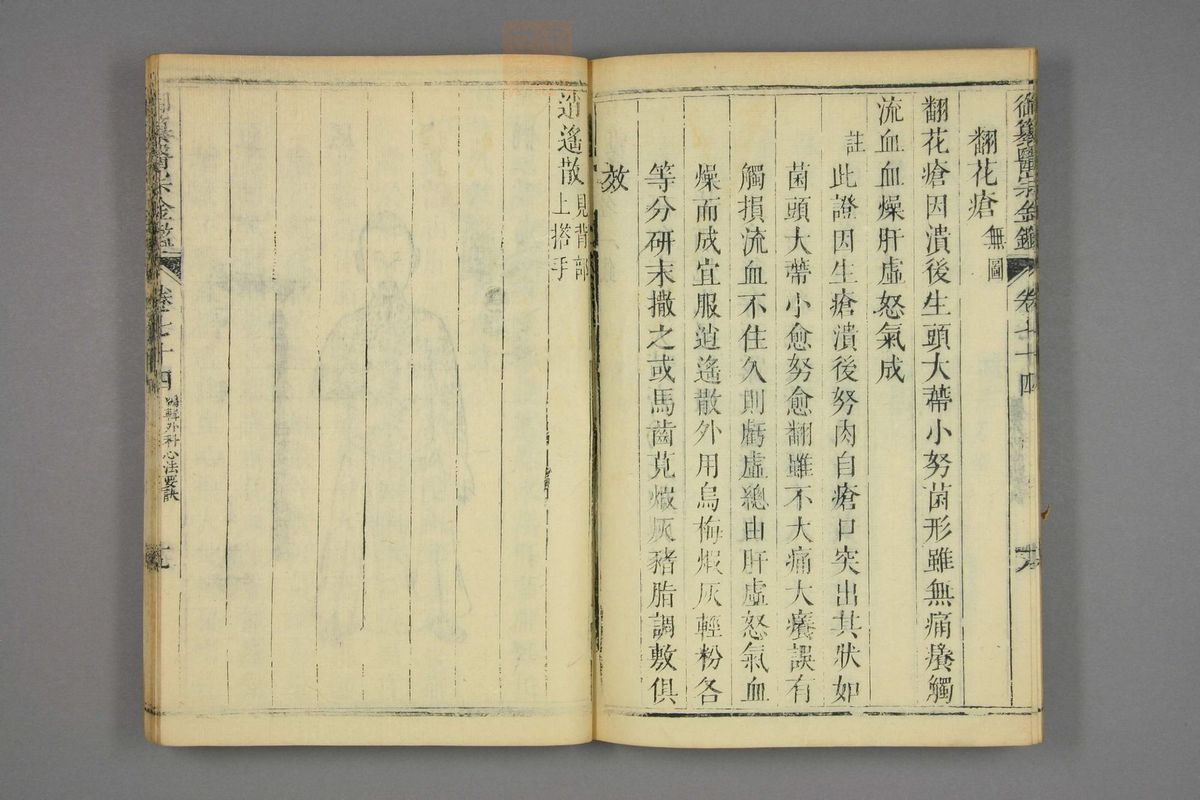 御纂醫宗金鑑 卷七十四
翻花瘡 無圖
翻花瘡因潰後生頭大蒂小努菌形雖無痛癢觸
流血血燥肝虛怒氣成
註 此證因生瘡潰後努肉自瘡口突出其狀如
菌頭大蔕小愈努愈翻雖不大痛大癢誤有
觸損流血不住久則虧虛總由肝虛怒氣血
燥而成宜服逍遙散外用烏梅煆灰輕粉各
等分研末撒之或馬齒莧煆灰豬脂調敷俱
效
逍遙散 見背部上搭手
御纂醫宗金鑑 卷七十四 編輯外科心法要訣